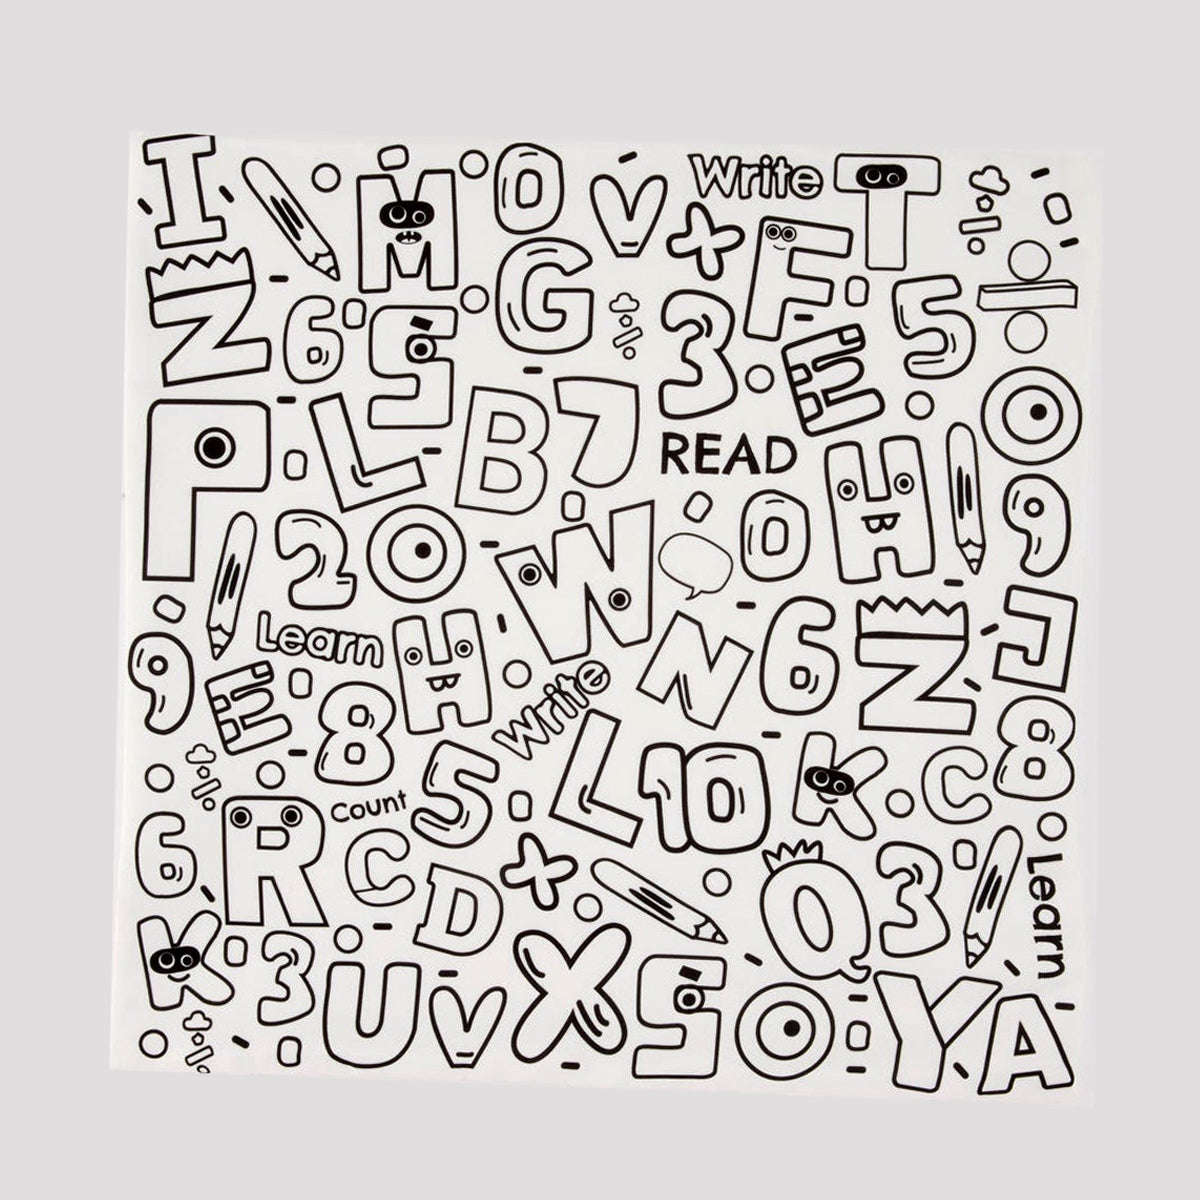 I M 0 V Write T
Z 6 S G 3 x F E 5 ÷
P L B 7 READ H O 9
2 O W 0 N 6 Z J
9 E Learn H 8 Write 8
6 R Count 5 L 10 K C
C D x Q 3 Learn
K 3 U V X S O Y A